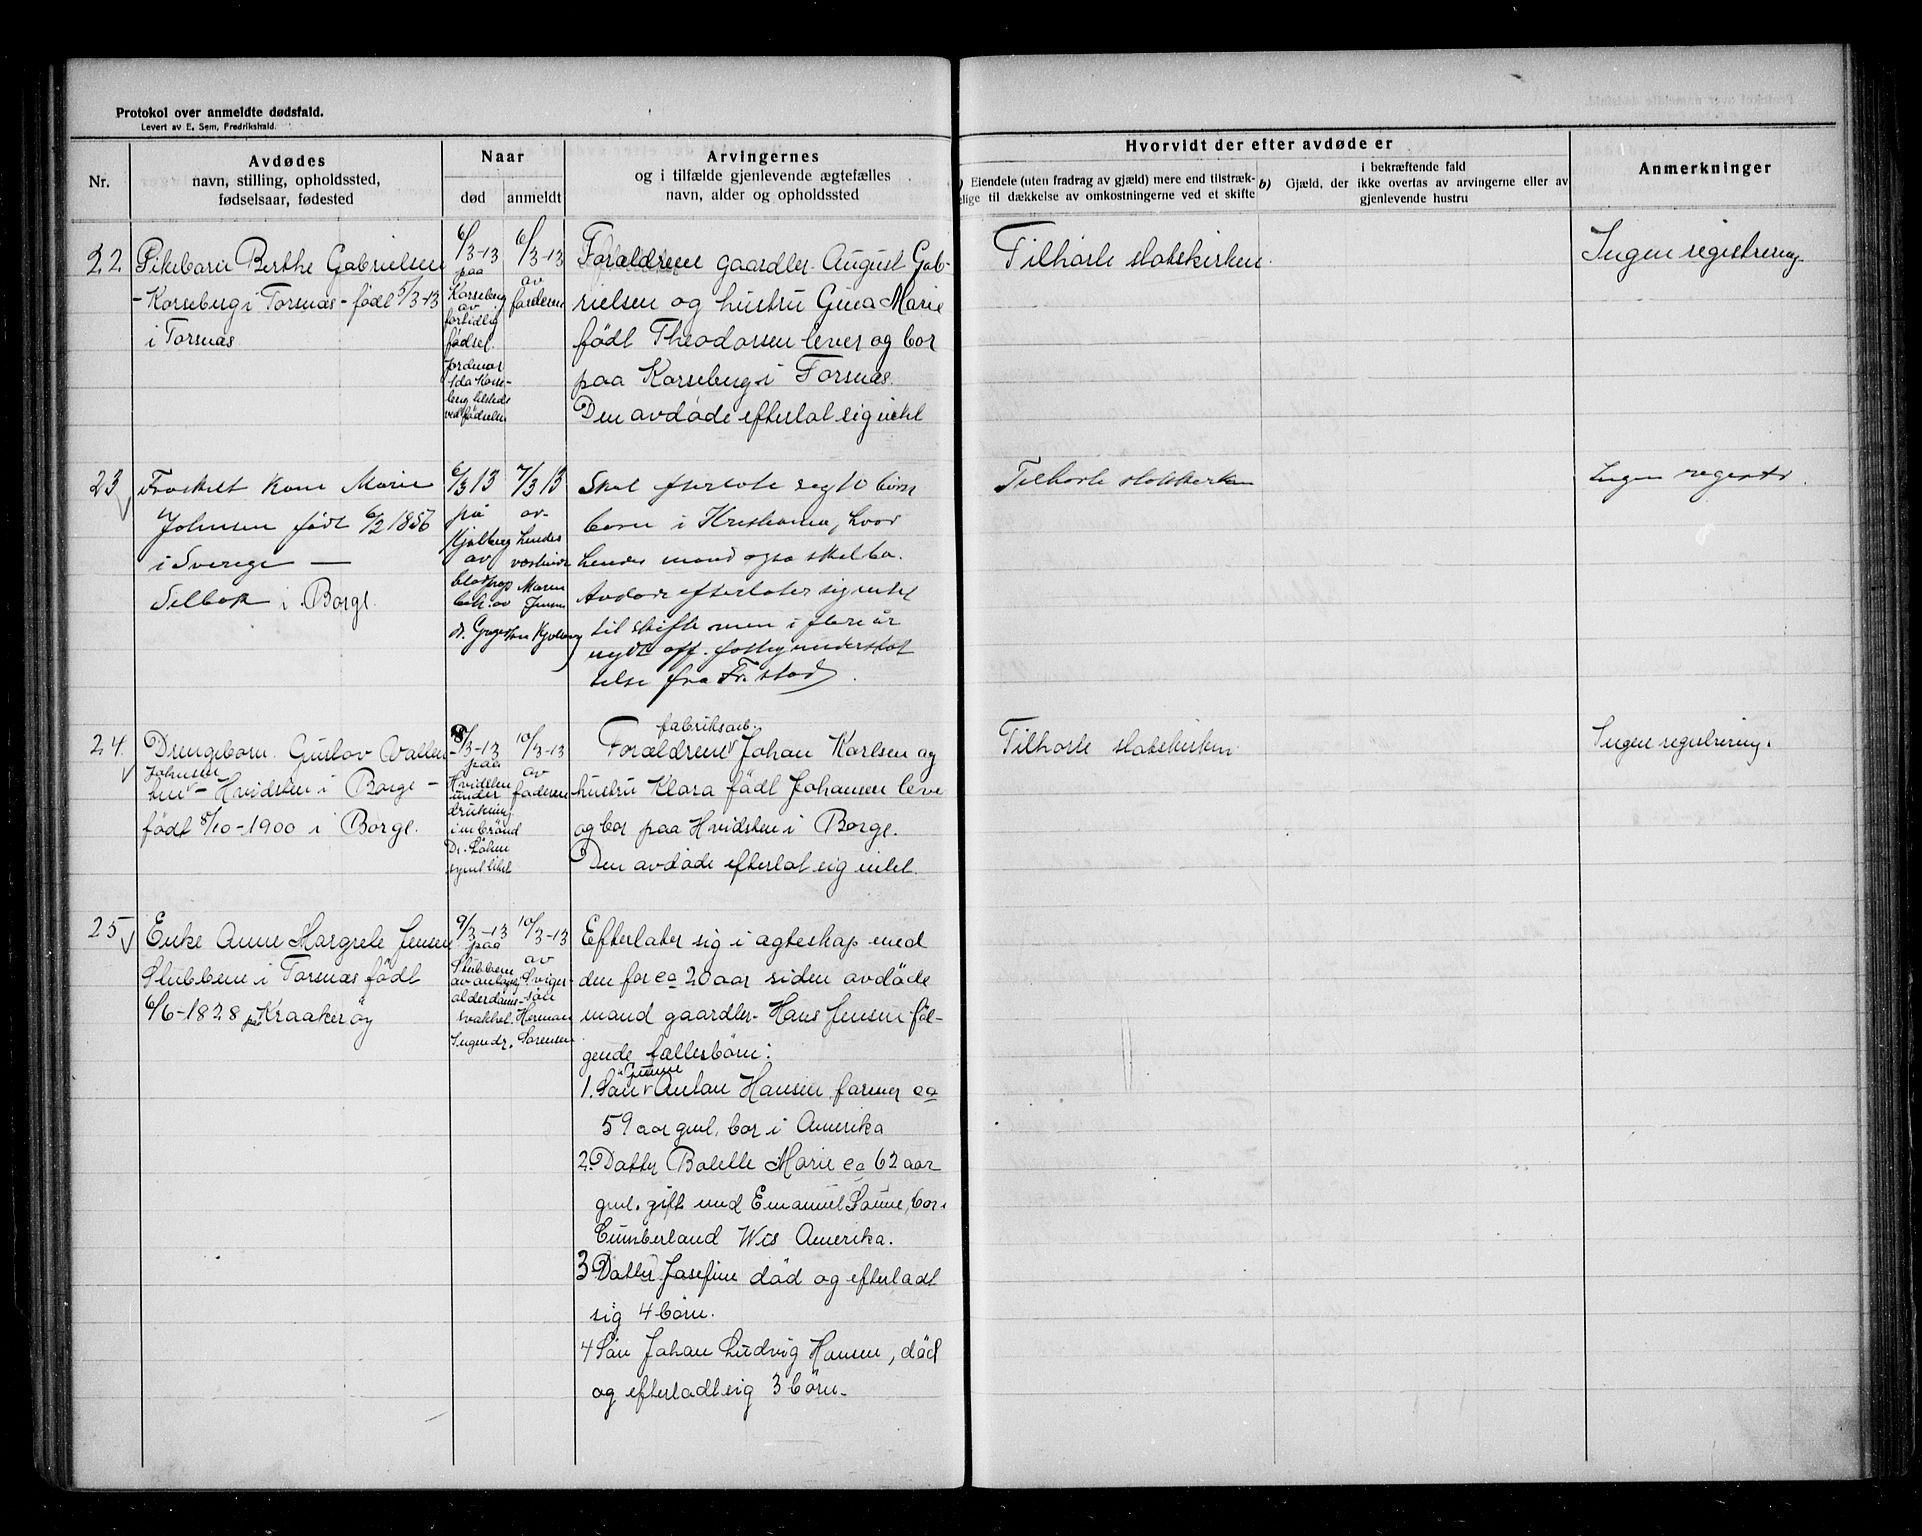 Protokol over anmeldte dødsfald.
Levert av E. Sem, Fredrikshald.
Nr.
Avdødes
navn, stilling, opholdssted,
fødselsaar, fødested
Naar
død
anmeldt
Arvingernes
og i tilfælde gjenlevende ægtefælles
navn, alder og opholdssted
Hvorvidt der efter avdøde er
a) Eiendele (uten fradrag av gjæld) mere end tilstræk-
kelige til dækkelse av omkostningerne ved et skifte
b) Gjæld, der
i bekræftende fald
ikke overtas av arvingerne eller av
gjenlevende hustru
Anmerkninger
22
Pikebarn Berthe Gabrielsen
- Korseberg i Torsnæs - født 5/3-13
i Torsnæs
6/3-13
paa
Korseberg
av
fortidlig
fødsel.
Jordmor
Ida Korse-
berg tilstede
ved fødselen
6/3-13
av
faderen
Forældrene gaardbr. August Gab-
rielsen og hustru Gina Marie
født Theodorsen lever og bor
paa Korseberg i Torsnæs.
Den avdøde efterlot sig intet
Tilhørte statskirken.
Ingen registrering.
23
Fraskilt kone Marie
Johnsen født 6/2 1856
i Sverige —
Selbak i Borge.
6/3 13
på
Kjølberg
av
beh. av
dr.
7/3 13
av
hendes
Maren
Jensen
Kjølberg
Skal efterlate seg 10 børn
born i Kristiania, hvor
hendes mand også skal bo.
Avdøde efterlater sig intet
til skifte men i flere år
nydt off. fattigunderstøt
telse fra Fr.stad.
Tilhørte statskirken
Ingen registr.
24.
Drengebarn Gustav Vallen
tin Johnsen - Hvidsten i Borge -
født 8/10-1900 i Borge.
8/3-13
paa
Hvidsten
under
drukning
i en brønd
Dr.
synet liket
10/3-13
av
faderen
Forældrene fabriksarb. Johan Karlsen og
hustru Klara født Johansen leve
og bor paa Hvidsten i Borge.
Den avdøde efterlot sig intet.
Tilhørte statskirken.
Ingen registrering.
25
Enke Anne Margrete Jensen
Stubben i Torsnæs født
6/6-1828 paa Kraakerøy
9/3-13
paa
Stubben
av
alderdoms-
svakhet.
Ingen dr.
10/3-13
av
Sviger-
søn
Herman
Sørensen
Efterlater sig i ægteskap med
den for ca 20 aar siden avdøde
mand gaardbr. Hans Jensen føl-
gende fællesbørn:
1. Søn Anton Hansen farmer ca
59 aar gml. bor i Amerika
2. Datter Bolette Marie ca 62 aar
gml. gift med Emanuel Sanne, bor.
Cumberland Wis Amerika.
3 Datter Josefine død og efterladt
sig 4 børn.
4 Søn Johan Ludvig Hansen, død
og efterladt sig 3 børn.